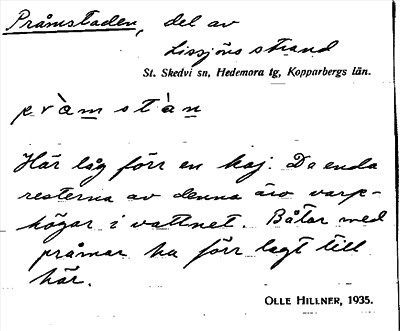 Pråmstaden, del av
Lissjöns strand
St. Skedvi sn, Hedemora tg, Kopparbergs län.
pràmstàn
Här låg förr en kaj. De enda
resterna av denna äro varp-
högar i vattnet. Båtar med
pråmar ha förr lagt till
här.
OLLE HILLNER, 1935.